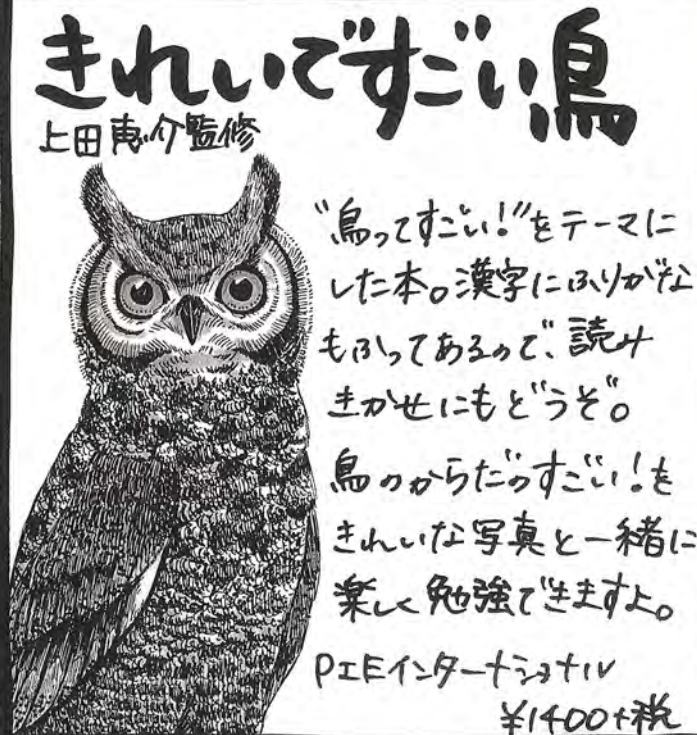 きれいですごい鳥
上田恵介監修
"鳥ってすごい!"をテーマに
した本。漢字にふりがな
もふってあるので、読み
きかせにもどうぞ。
鳥のからだのすごい!を
きれいな写真と一緒に
楽しく勉強できますよ。
PIEインターナショナル
¥1400+税